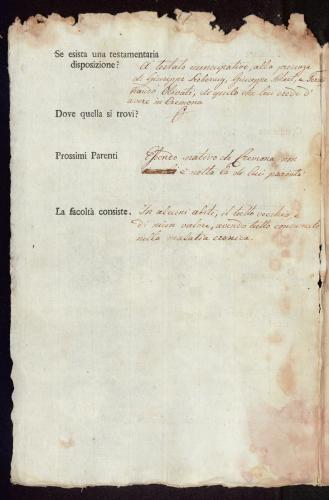 Se esista una testamentaria
disposizione?
A testato nuncupativo, alla presenza
di Giuseppe Giuseppe e
di quello che lui credè d'
avere in Cremona
Dove quella si trovi?
Prossimi Parenti
Essendo nativo di Cremona, non
è nota la di lui parentela
La facoltà consiste.
In alcuni abiti, il tutto vecchio, e
di niun valore, avendo tutto consumato
nella malatia cronica.